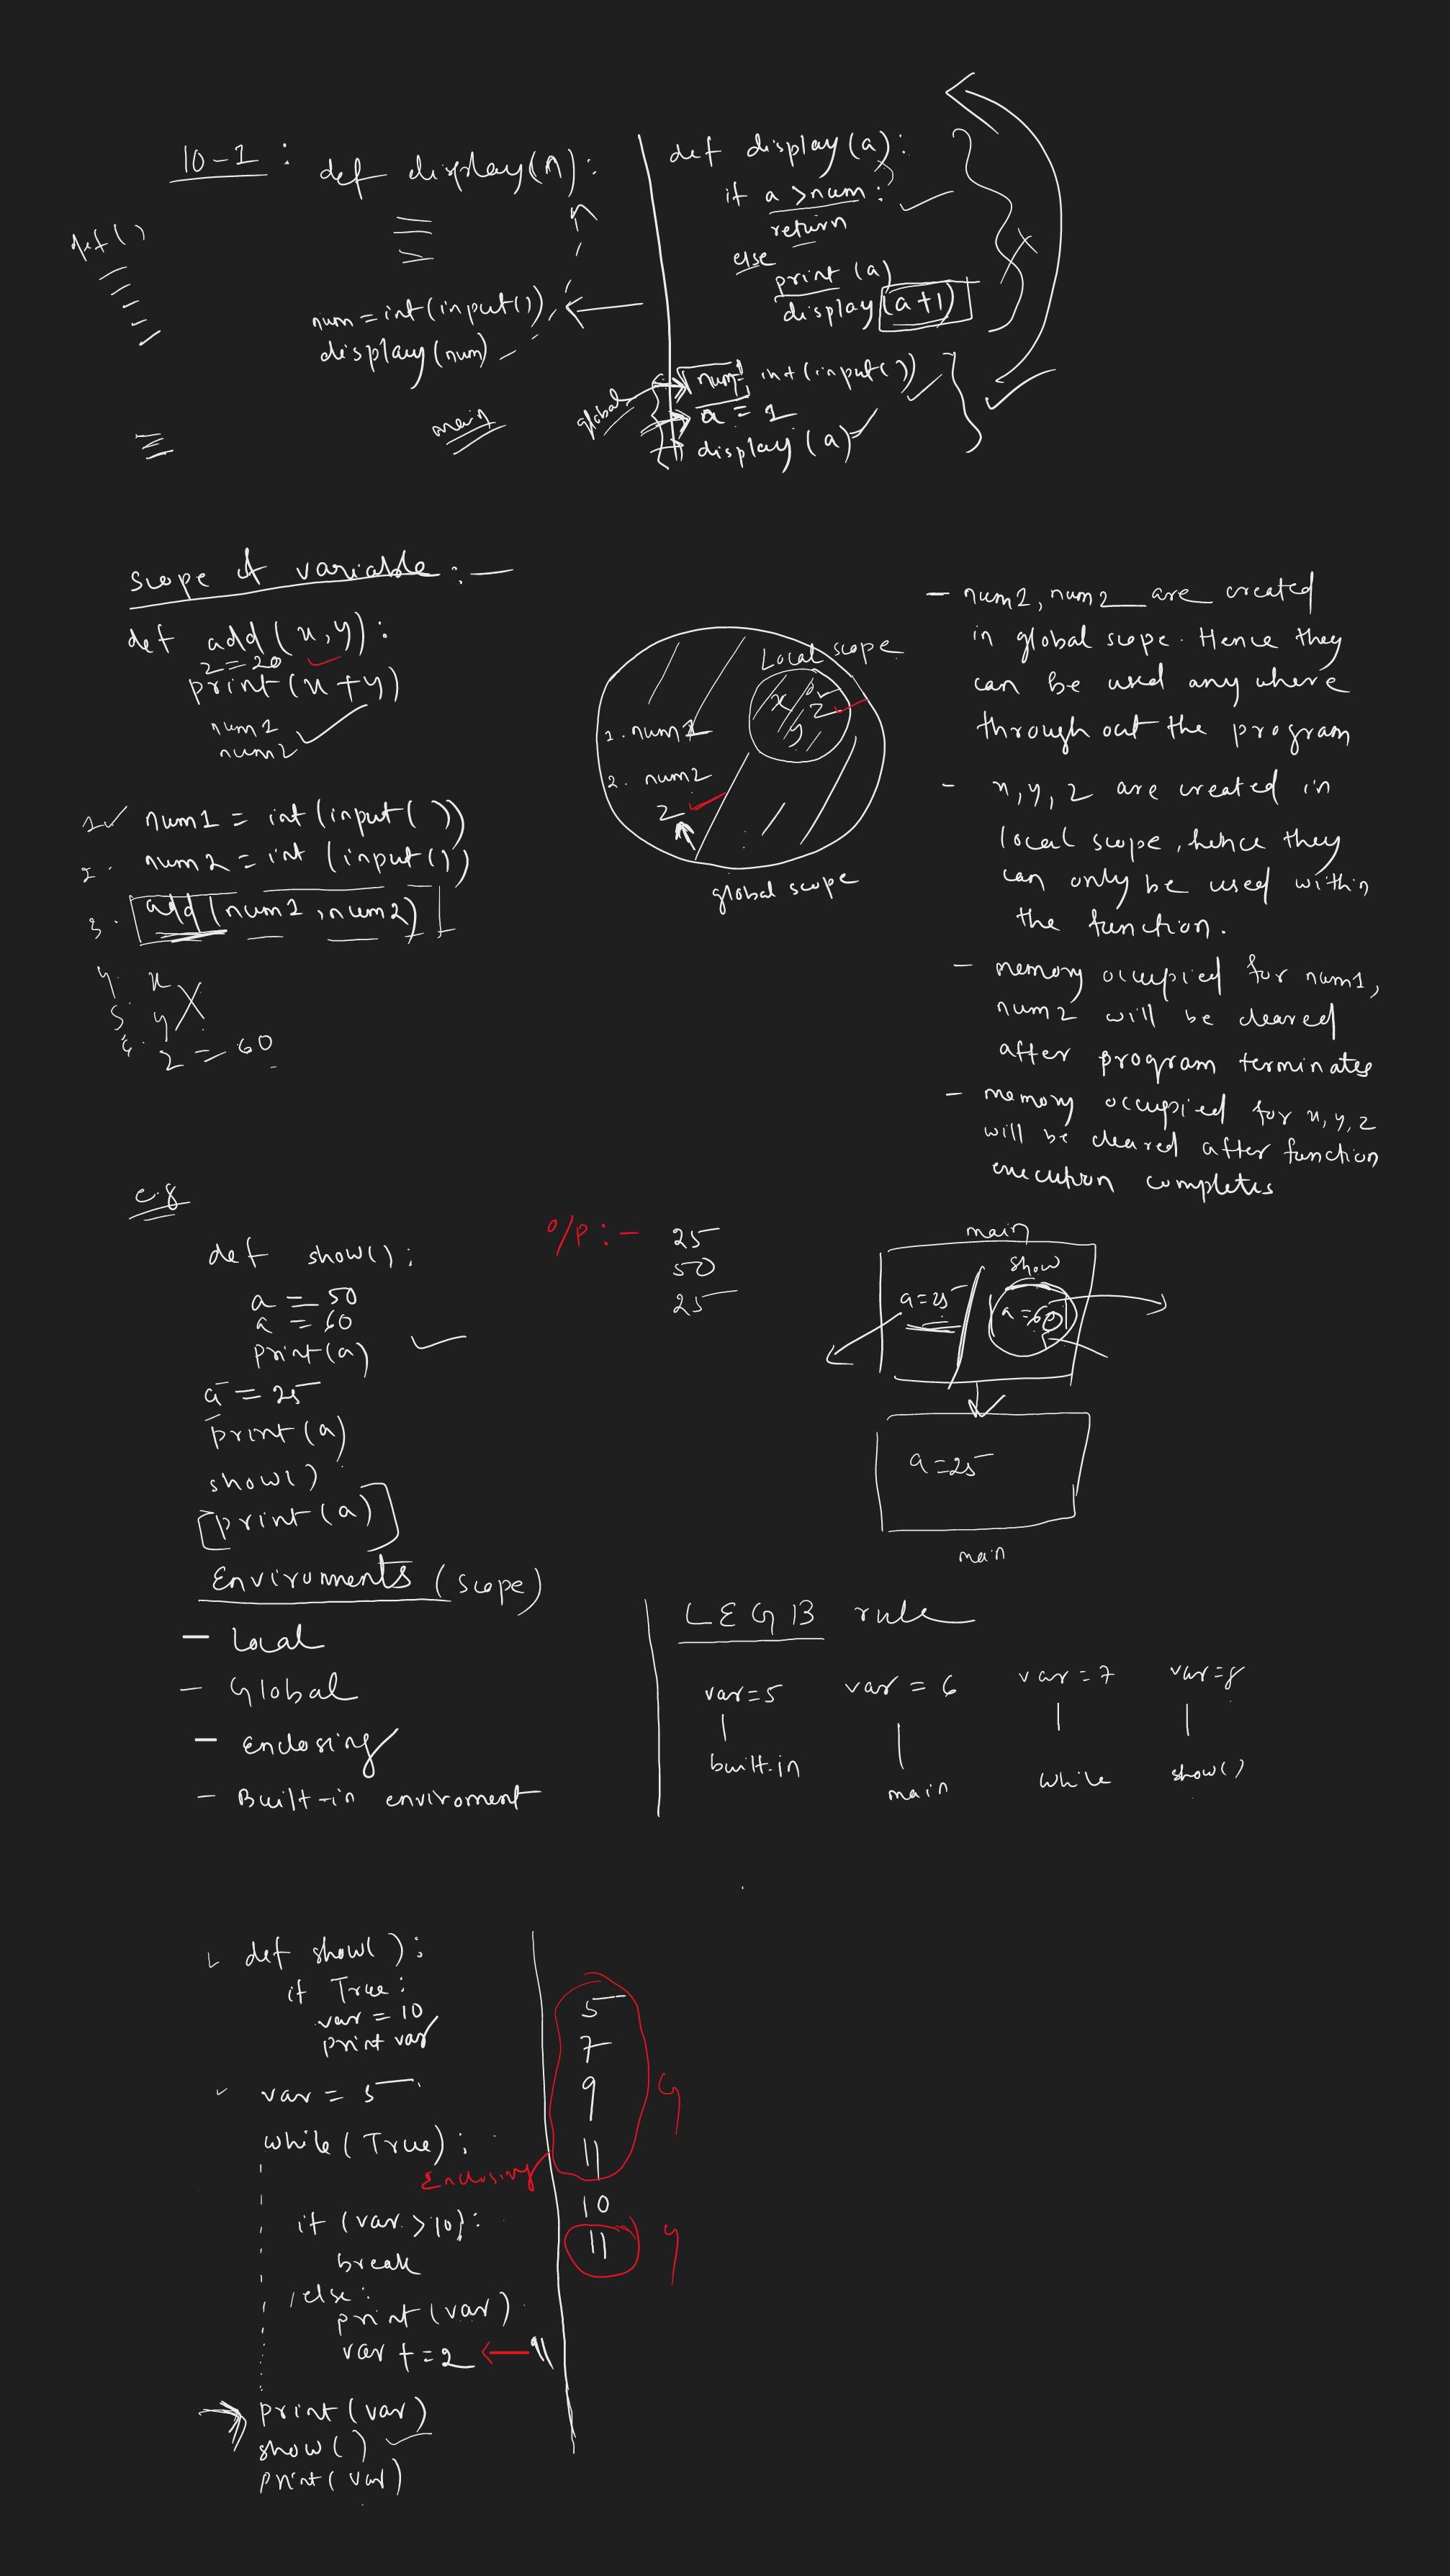 10-1 :
def display(n):
def()
num = int(input())
display(num)
main
def display(a):
if a > num:
return
else
print(a)
display(a+1)
global
num = int(input())
a = 1
display(a)
Scope of variable :-
def add(x,y):
z = 20
print(x+y)
num1
num2
1. num1 = int(input())
2. num2 = int(input())
3. add(num1, num2)
4. x
5. y
6. z = 60
Local scope
x
y
z
1. num1
2. num2
z
global scope
- num1, num2 are created
in global scope. Hence they
can be used any where
through out the program
- x, y, z are created in
local scope, hence they
can only be used within
the function.
- memory occupied for num1,
num2 will be cleared
after program terminates
- memory occupied for x, y, z
will be cleared after function
execution completes
e.g
def show():
a = 50
a = 60
print(a)
a = 25
print(a)
show()
print(a)
O/P :-
25
50
25
main
show
a=25
a=60
a=25
main
Enviroments (scope)
- Local
- Global
- Enclosing
- Built-in enviroment
LEGB rule
var=5 var = 6 var = 7 var=8
built-in main while show()
def show():
if True:
var = 10
print var
var = 5
while(True):
if (var > 10):
break
else:
print(var)
var += 2
11
print(var)
show()
print(var)
Enclosing
5
7
9
11
G
10
11
G